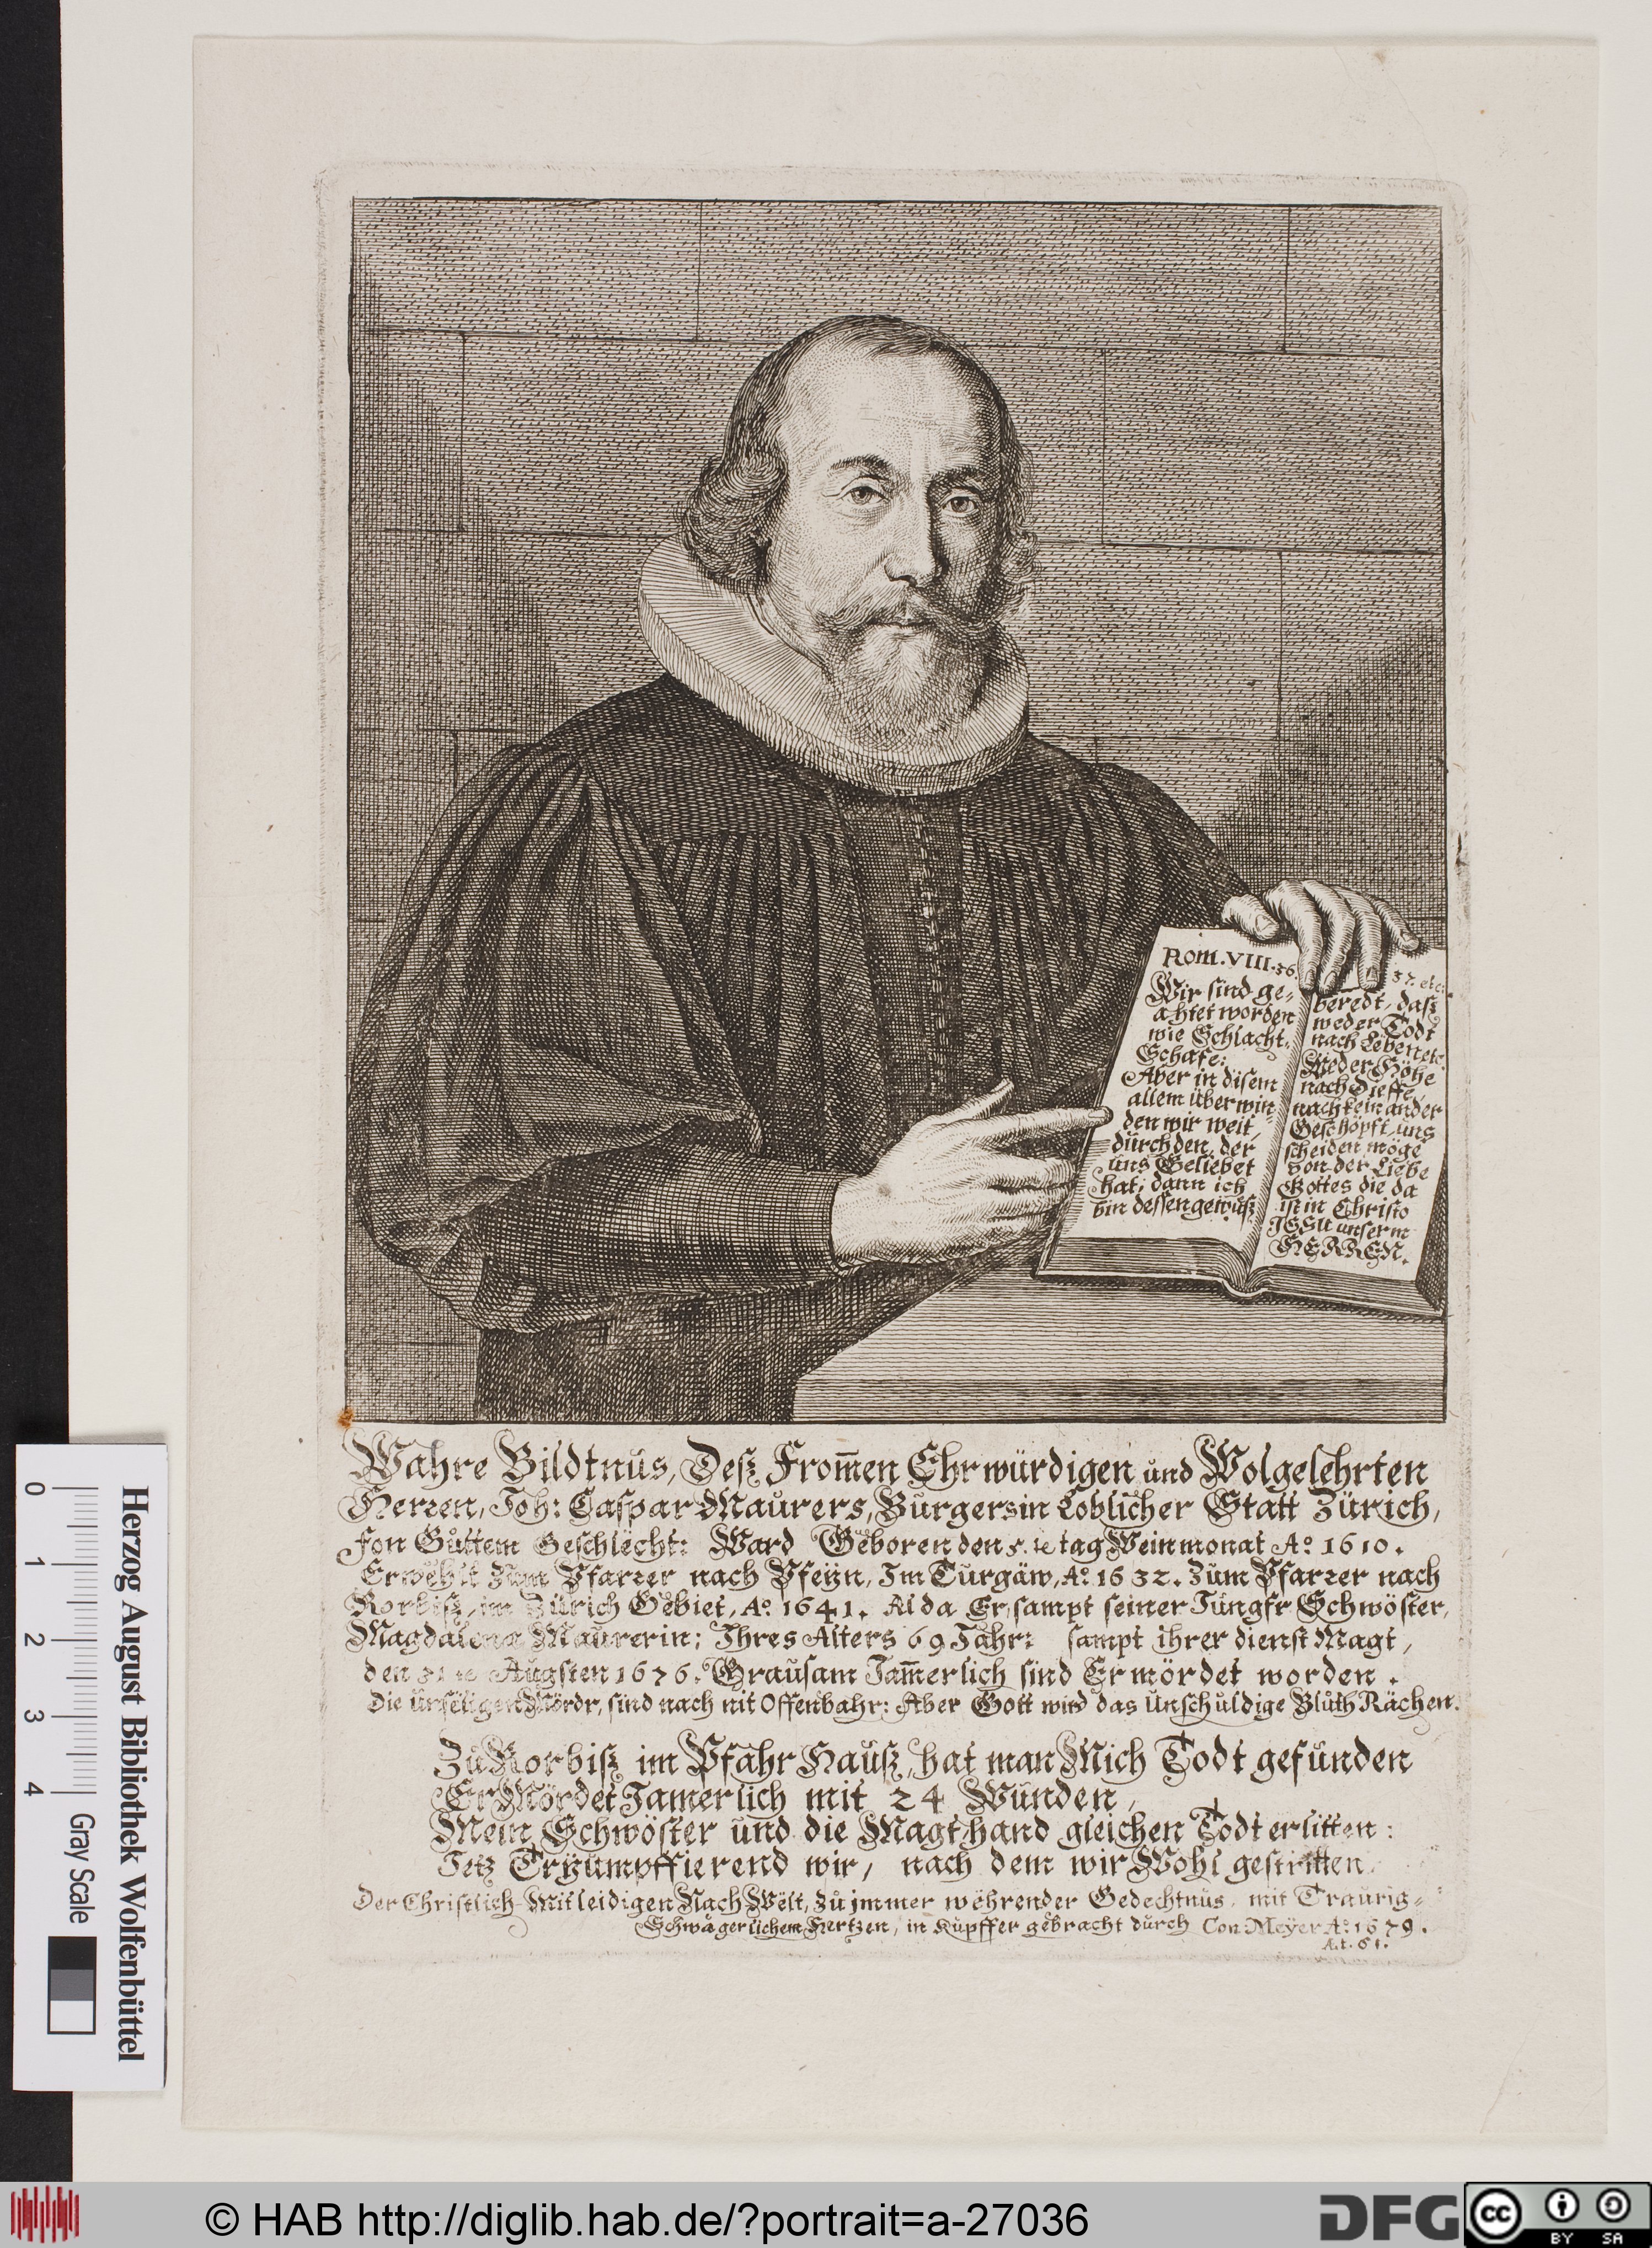 Rom. VIII. 36.
Wir sind ge-
ahtet worden
wie Schlacht-
Schafe:
Aber in disem
allem überwin-
den wir weit,
durch den, der
uns Geliebet
hat; dann ich
bin dessen gewüß
37. etc:
beredt, dasz
weder Todt
nach Leben etc.
Weder Höhe
nach Dieffe,
nach kein ander
Geschöpft, uns
scheiden möge
von der Liebe
Gottes die da
ist in Christo
JESU unserm
HERREN.
Wahre Bildtnus, Desz From̄en Ehrwürdigen und Wolgelehrten
Herren, Joh: Caspar Maurers, Burgers in Loblicher Statt Zürich,
fon Guttem Geschlecht: Ward Geboren den 5.te tag Weinmonat Aº 1610.
Erwehlt Zum Pfarrer nach Pfeÿn, Im Turgäw, Aº 1632. Zum Pfarrer nach
Rorbisz, im Zürich Gebiet, Aº 1641. Alda Er, sampt seiner Jungfr Schwöster,
Magdalena Maurerin; Ihres Alters 69 Jahr: sampt ihrer dienst Magt,
den 31 te Augsten 1676. Grausam Jam̄erlich sind Ermördet worden.
Die Unseligen Mördr, sind nach nit Offenbahr: Aber Gott wird das Unschuldige Bluth Rächen.
Zu Rorbisz im Pfahr Hausz, hat man Mich Todt gefunden
ErMördet Jamerlich mit 24 Wunden,
Mein Schwöster und die Magt hand gleichen Todt erlitten:
Jetz Tryumpffierend wir, nach dem wir Wohl gestritten.
Der Christlich-Mitleidigen Nach Welt, zu jmmer wehrender Gedechtnus, mit Traurig-
Schwägerlichem Hertzen, in Kupffer gebracht durch Con Meÿer Aº 1679.
Æt. 61.
Herzog August Bibliothek Wolfenbüttel
0 1 2 3 4 Gray Scale
© HAB http://diglib.hab.de/?portrait=a-27036
DFG
cc BY SA